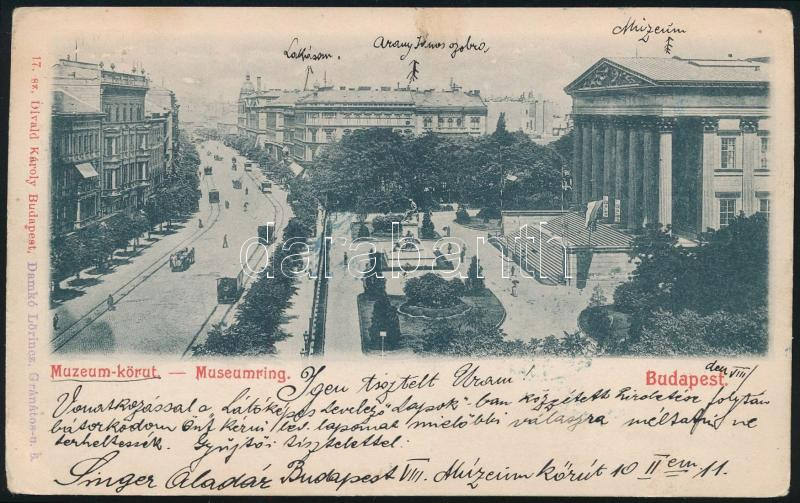 Lakásom.
Arany János szobra
Múzeum
17. sz. Divald Károly Budapest, Damkó Lörincz, Gránátos-u. 5.
darabanth
Muzeum-körut. — Museumring.
Budapest.
den VIII/
Igen tisztelt Uram!
Vonatkozással a „Látóképes Levelező Lapok"-ban közzétett hirdetése folytán
bátorkodom Önt kérni lev. lapomat mielőbbi válaszra méltatni ne
terheltessék. Gyűjtői tisztelettel:
Singer Aladár Budapest VIII. Múzeum körút 10 II em 11.